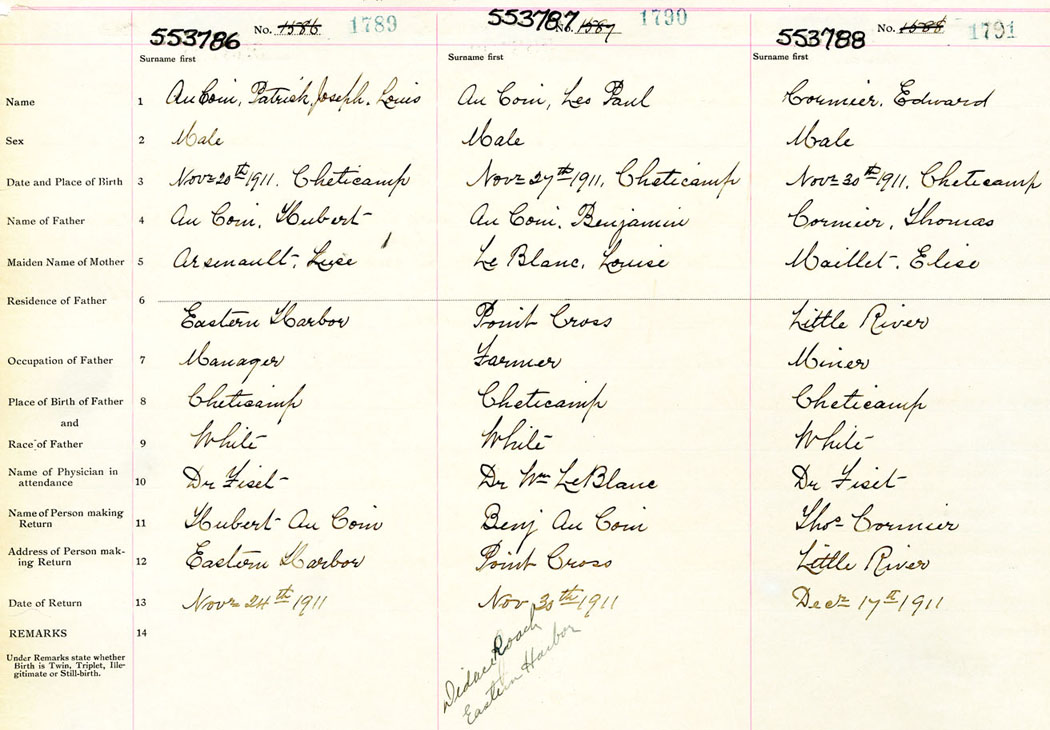 553786 No. 1586 1789 553787 No. 1587 1790 553788 No. 1588 1791
Surname first Surname first Surname first
Name 1 Au Coin, Patrick, Joseph, Louis Au Coin, Leo Paul Cormier, Edward
Sex 2 Male Male Male
Date and Place of Birth 3 Novr 20th 1911. Cheticamp Novr 27th 1911, Cheticamp Novr 30th 1911, Cheticamp
Name of Father 4 Au Coin, Hubert Au Coin, Benjamin Cormier, Thomas
Maiden Name of Mother 5 Arsenault, Luse Le Blanc, Louise Maillet, Elise
Residence of Father 6
Eastern Harbor Point Cross Little River
Occupation of Father 7 Manager Farmer Miner
Place of Birth of Father 8 Cheticamp Cheticamp Cheticamp
and
Race of Father 9 White White White
Name of Physician in
attendance 10 Dr Fiset Dr Wm LeBlanc Dr Fiset
Name of Person making
Return 11 Hubert Au Coin Benj Au Coin Thos Cormier
Address of Person mak-
ing Return 12 Eastern Harbor Point Cross Little River
Date of Return 13 Novr 24th 1911 Nov 30th 1911 Decr 17th 1911
REMARKS 14
Under Remarks state whether
Birth is Twin, Triplet, Ille-
gitimate or Still-birth.
Didace Roach
Eastern Harbor